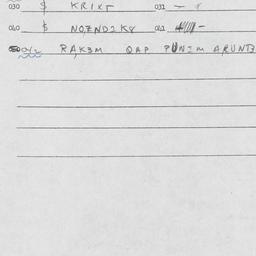 030 $ KRIKT 031 —
040 $ NOZNDIK8 041 —
042 RAK3M QAP PUNIM ARUNTB